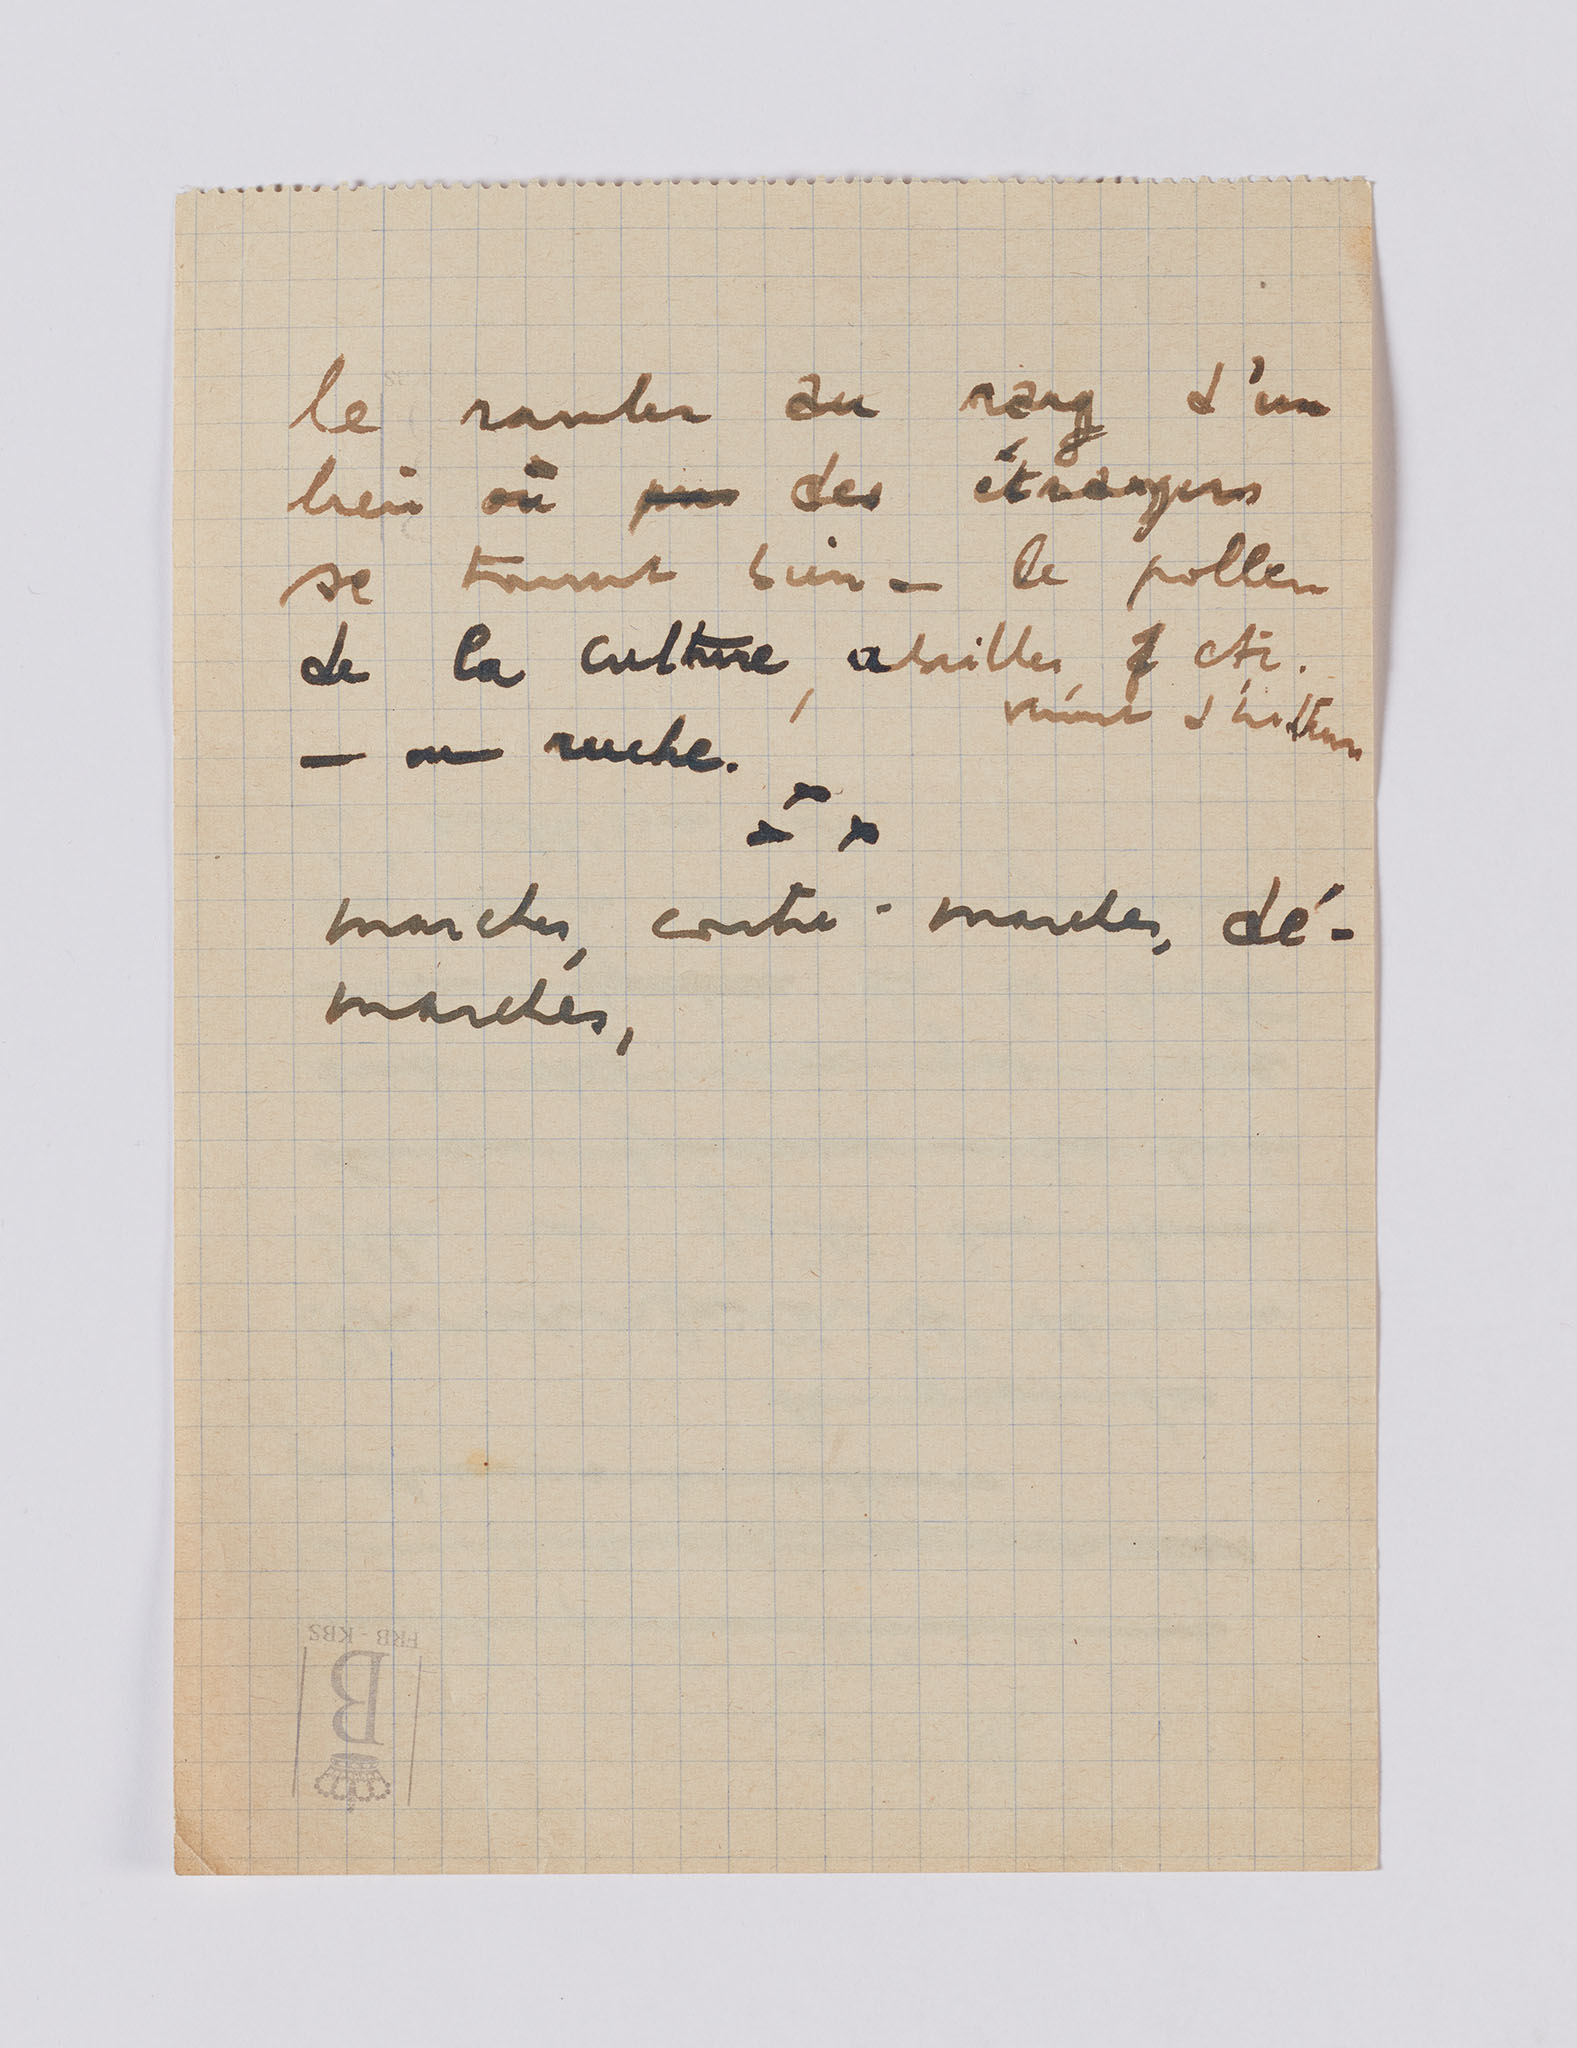 le ranter au rang d'un
lieu où des étrangers
se trouvent bien — le pollen
de la culture, abeilles, etc.
vivant d'
— ou ruche.
x x x
marches, contre-marches, dé-
marches,
FRB - KBS
B